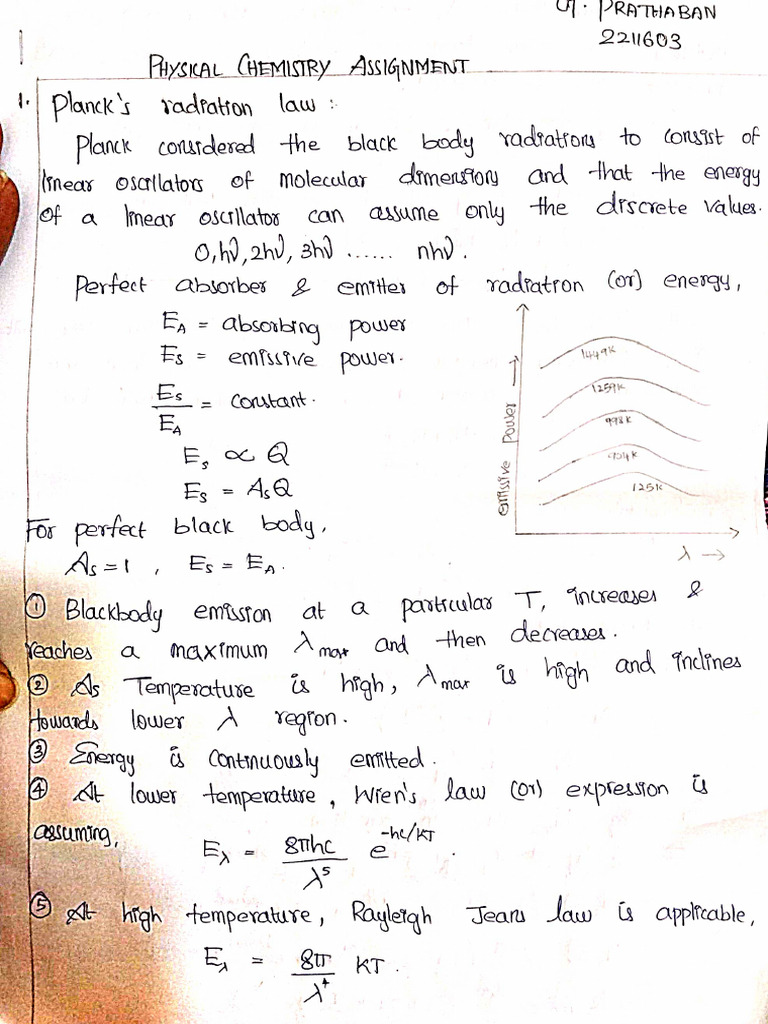 G. PRATHABAN
2211603
PHYSICAL CHEMISTRY ASSIGNMENT
1. Planck's radiation law :
Planck considered the black body radiations to consist of
linear oscillators of molecular dimensions and that the energy
of a linear oscillator can assume only the discrete values.
0, hν, 2hν, 3hν ...... nhν.
Perfect absorber & emitter of radiation (or) energy,
E_A = absorbing power
E_S = emissive power.
E_S / E_A = constant.
E_S ∝ Q
E_S = A_S Q
emissive power →
1449K
1259K
998K
904K
1251K
λ →
For perfect black body,
A_S = 1 , E_S = E_A.
① Blackbody emission at a particular T, increases &
reaches a maximum λ max and then decreases.
② As Temperature is high, λ max is high and inclines
towards lower λ region.
③ Energy is continuously emitted.
④ At lower temperature, Wien's law (or) expression is
assuming,
E_λ = 8πhc / λ^5 e^-hc/KT .
⑤ At high temperature, Rayleigh Jeans law is applicable,
E_λ = 8π / λ^4 KT .